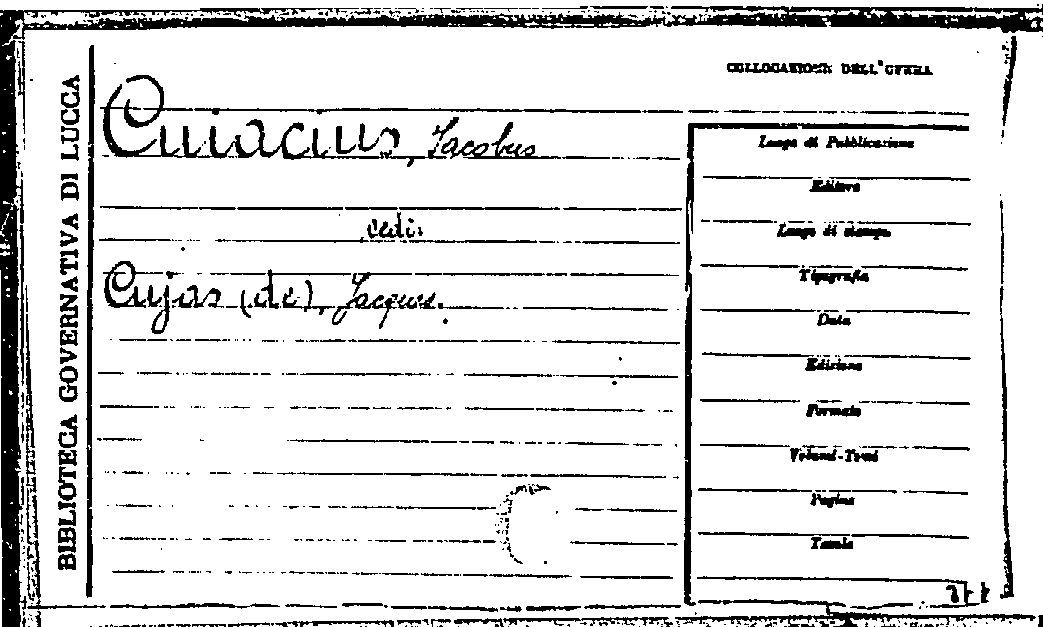 BIBLIOTECA GOVERNATIVA DI LUCCA
COLLOCAZIONE DELL'OPERA
Cuiacius, Jacobus
vedi:
Cujas (de), Jacques.
Luogo di Pubblicazione
Editore
Luogo di stampa
Tipografia
Data
Edizione
Formato
Volumi-Tomi
Pagine
Tavole